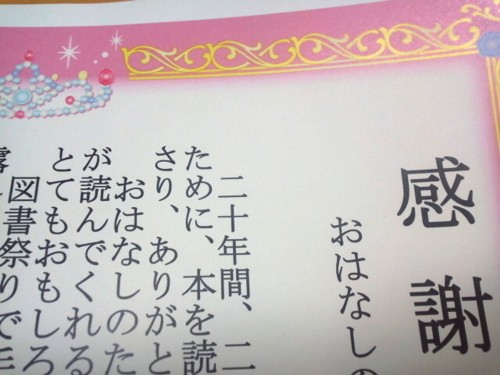 感謝
おはなしの
二十年間、二
ために、本を読
さり、ありがと
おはなしのた
が読んでくれる
とてもおもしろ
図書祭りで